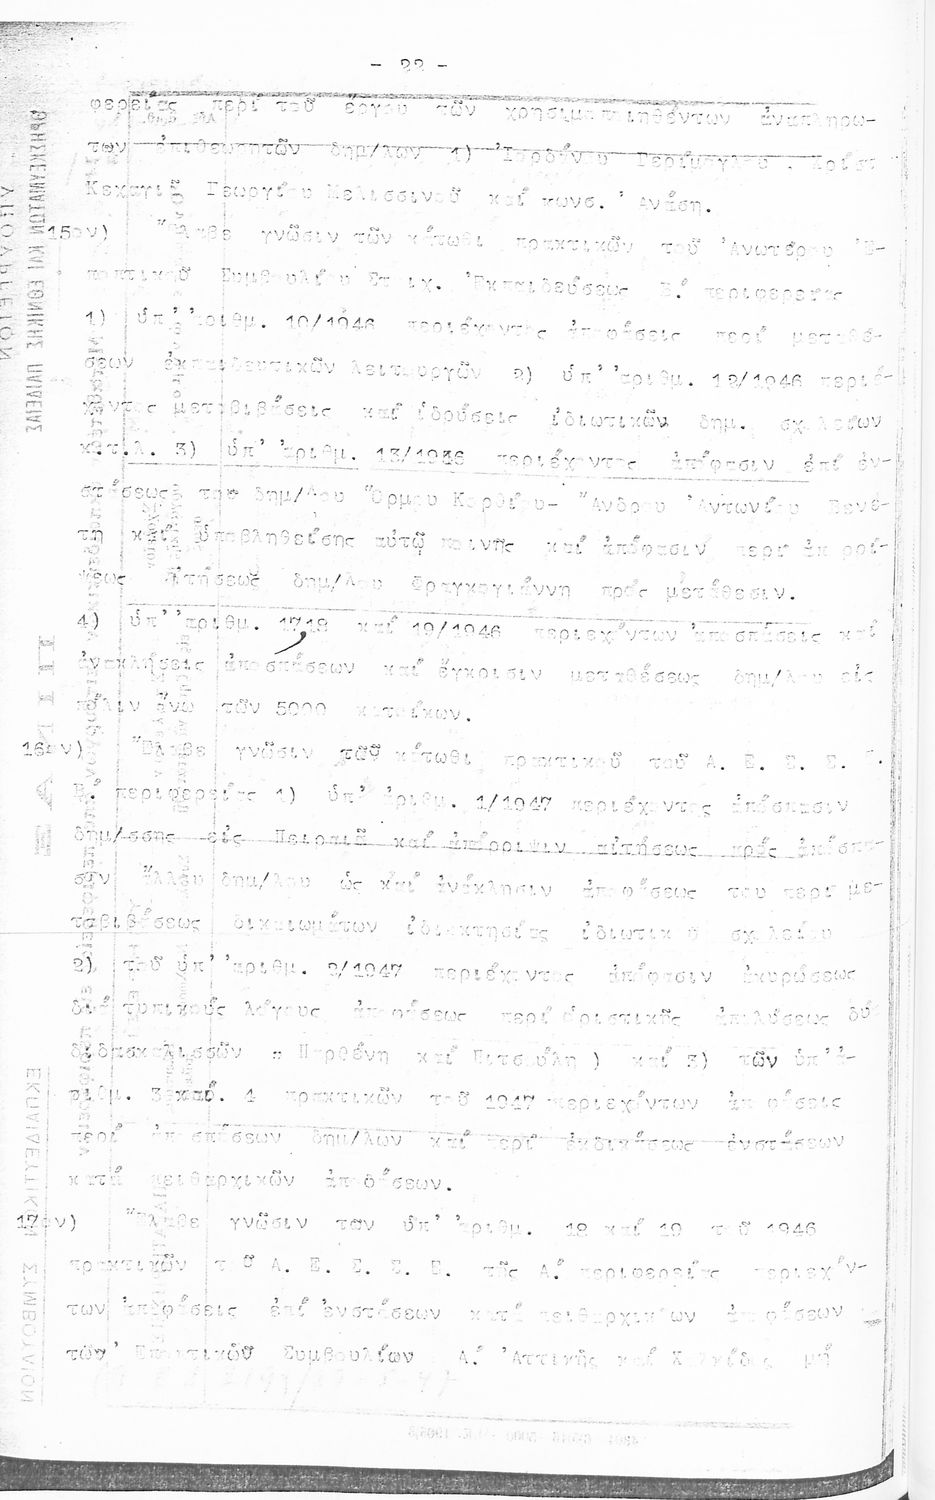 - 22 -
φερείας περί τοῦ ἔργου τῶν χρησιμοποιηθέντων ἀναπληρω-
τῶν ἐπιθεωρητῶν δημ/λων 1) Ἰορδάνου
Γεωργίου Μελισσινοῦ καί κωνσ. Ἀνάση.
15ον) Ἔλαβε γνῶσιν τῶν κάτωθι πρακτικῶν τοῦ Ἀνωτέρου Ἐ-
ποπτικοῦ Συμβουλίου Στοιχ. Ἐκπαιδεύσεως Β.΄ περιφερείας
1) ὑπ' ἀριθμ. 10/1946 περιέχοντος ἀποφάσεις περί μεταθέ-
σεων ἐκπαιδευτικῶν λειτουργῶν 2) ὑπ' ἀριθμ. 12/1946 περιέ-
χοντος μεταβιβάσεις καί ἱδρύσεις ἰδιωτικῶν δημ. σχολείων
κ.τ.λ. 3) ὑπ' ἀριθμ. 13/1946 περιέχοντος ἀπόφασιν ἐπί ἐν-
στάσεως του δημ/λου Ὅρμου Κορθίου- Ἄνδρου Ἀντωνίου Βενέ-
τη καί ὑποβληθείσης αὐτῷ ποινῆς καί ἀπόφασιν περί ἀπορρί-
ψεως αἰτήσεως δημ/λου Φραγκογιάννη πρός μετάθεσιν.
4) ὑπ' ἀριθμ. 17,18 καί 19/1946 περιεχόντων ἀποσπάσεις καί
ἀνακλήσεις ἀποσπάσεων καί ἔγκρισιν μεταθέσεως δημ/λου εἰς
πόλιν ἄνω τῶν 5000 κατοίκων.
16ον) Ἔλαβε γνῶσιν τῶν κάτωθι πρακτικοῦ τοῦ Α. Ε. Σ. Σ. Ε.
Β.΄ περιφερείας 1) ὑπ' ἀριθμ. 1/1947 περιέχοντος ἀπόσπασιν
δημ/σσης εἰς Πειραιᾶ καί ἀπόρριψιν αἰτήσεως πρός ἀπόσπα-
σιν ἄλλου δημ/λου ὡς καί ἀνάκλησιν ἀποφάσεως του περί με-
ταβιβάσεως δικαιωμάτων ἰδιοκτησίας ἰδιωτικοῦ σχολείου
2) τοῦ ὑπ' ἀριθμ. 2/1947 περιέχοντος ἀπόφασιν ἀκυρώσεως
διά τυπικούς λόγους ἀποφάσεως περί ὁριστικῆς ἀπολύσεως δύο
διδασκαλισσῶν " Παρθένη καί Πιτσούλη ) καί 3) τῶν ὑπ' ἀ-
ριθμ. 3 καί. 4 πρακτικῶν τοῦ 1947 περιεχόντων ἀποφάσεις
περί ἀποσπάσεων δημ/λων καί περί ἐκδικάσεως ἐνστάσεων
κατά πειθαρχικῶν ἀποφάσεων.
17ον) Ἔλαβε γνῶσιν των ὑπ' ἀριθμ. 18 καί 19 τοῦ 1946
πρακτικῶν τοῦ Α. Ε. Σ. Σ. Ε. τῆς Α.΄ περιφερείας περιεχόν-
των ἀποφάσεις ἐπί ἐνστάσεων κατά πειθαρχικῶν ἀποφάσεων
τῶν Ἐποπτικῶν Συμβουλίων Α.΄ Ἀττικῆς καί Χαλκίδος μή